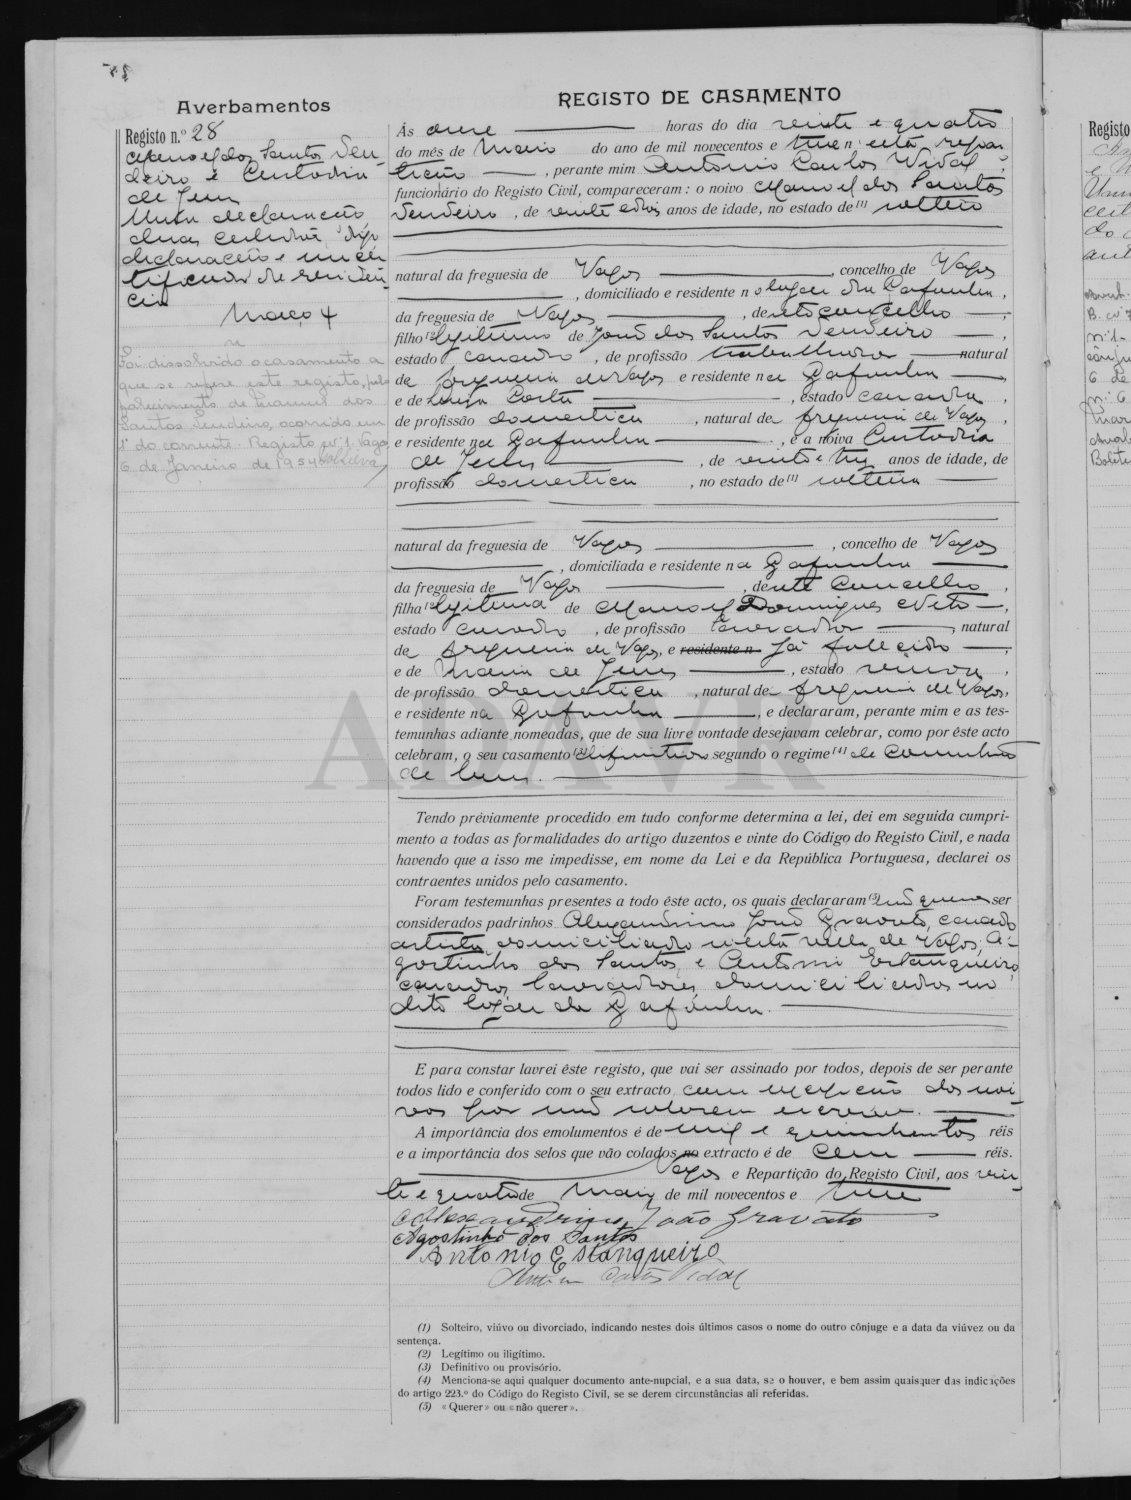 Averbamentos
Registo n.º 28
Manoel dos Santos Ven-
deiro e Custodia
de Jesus
Uma declaração
duas certidões, digo
declaração e um cer-
tificado de residen-
cia
Março 4
Foi dissolvido o casamento a
que se refere este registo, pelo
falecimento de Manuel dos
Santos Vendeiro, ocorrido em
1 do corrente. Registo nº 1. Vagos,
6 de Janeiro de 1954
REGISTO DE CASAMENTO
Ás onze horas do dia vinte e quatro
do mês de Março do ano de mil novecentos e treze n'esta repar-
tição, perante mim Antonio Carlos Vidal,
funcionário do Registo Civil, compareceram: o noivo Manoel dos Santos
Vendeiro, de vinte e dois anos de idade, no estado de (1) solteiro
natural da freguesia de Vagos, concelho de Vagos
, domiciliado e residente no lugar da Gafanha,
da freguesia de Vagos, deste concelho,
filho (2) legitimo de João dos Santos Vendeiro,
estado casado, de profissão trabalhador natural
da freguesia de Vagos e residente na Gafanha
e de Luiza Costa, estado casada,
de profissão domestica, natural da freguesia de Vagos,
e residente na Gafanha, e a noiva Custodia
de Jesus, de vinte e tres anos de idade, de
profissão domestica, no estado de (1) solteira
natural da freguesia de Vagos, concelho de Vagos
, domiciliada e residente na Gafanha
da freguesia de Vagos, deste concelho,
filha (2) legitima de Manoel Domingues Neto,
estado casado, de profissão lavrador, natural
da freguesia de Vagos, e residente n já falecido,
e de Maria de Jesus, estado viuva,
de profissão domestica, natural da freguesia de Vagos,
e residente na Gafanha, e declararam, perante mim e as tes-
temunhas adiante nomeadas, que de sua livre vontade desejavam celebrar, como por êste acto
celebram, o seu casamento (3) definitivo segundo o regime (4) de comunhão
de bens.
ADAVR
Tendo préviamente procedido em tudo conforme determina a lei, dei em seguida cumpri-
mento a todas as formalidades do artigo duzentos e vinte do Código do Registo Civil, e nada
havendo que a isso me impedisse, em nome da Lei e da República Portuguesa, declarei os
contraentes unidos pelo casamento.
Foram testemunhas presentes a todo êste acto, os quais declararam (5) não querer ser
considerados padrinhos Alexandrino João Gravato, casado
artista, domiciliado n'esta villa de Vagos, A-
gostinho dos Santos, e Antonio Estanqueiro,
casados, lavradores, domiciliados no
dito logar da Gafanha.
E para constar lavrei êste registo, que vai ser assinado por todos, depois de ser perante
todos lido e conferido com o seu extracto, com excepção dos noi-
vos por não saberem escrever.
A importância dos emolumentos é de mil e quinhentos réis
e a importância dos selos que vão colados no extracto é de cem réis.
Vagos e Repartição do Registo Civil, aos vin-
te e quatro de Março de mil novecentos e treze
Alexandrino João Gravato
Agostinho dos Santos
Antonio Estanqueiro
Antonio Carlos Vidal
(1) Solteiro, viúvo ou divorciado, indicando nestes dois últimos casos o nome do outro cônjuge e a data da viúvez ou da
sentença.
(2) Legítimo ou iligítimo.
(3) Definitivo ou provisório.
(4) Menciona-se aqui qualquer documento ante-nupcial, e a sua data, se o houver, e bem assim quaisquer das indicações
do artigo 223.º do Código do Registo Civil, se se derem circunstâncias ali referidas.
(5) «Querer» ou «não querer».
Registo